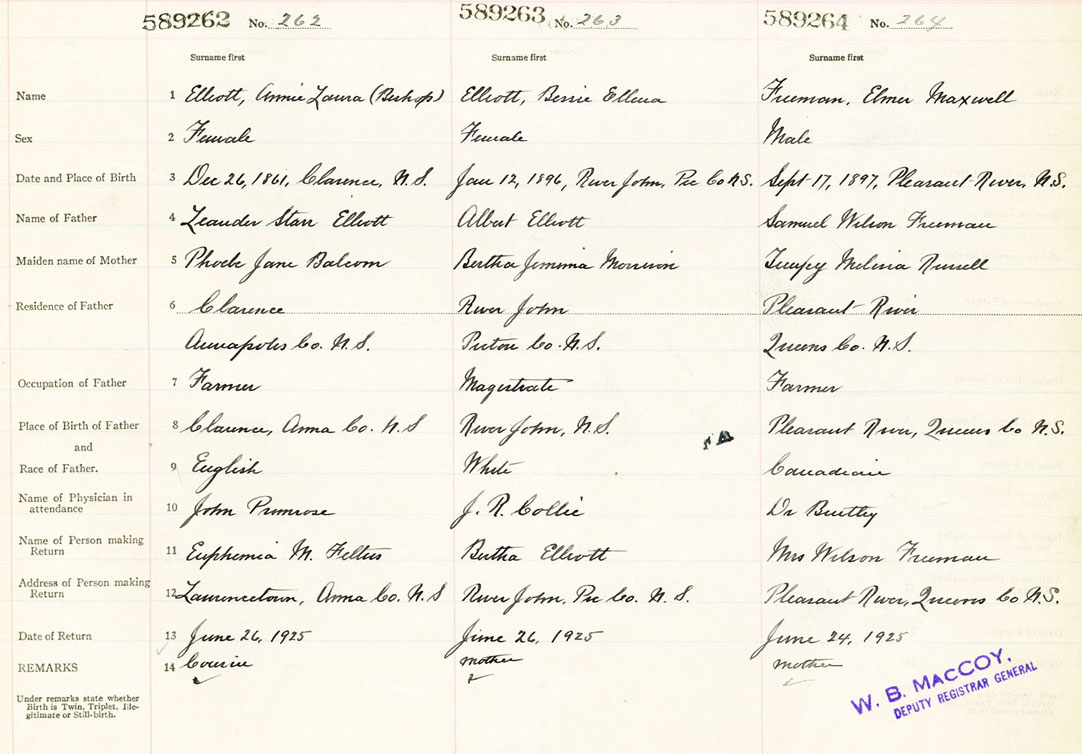 589262 No. 262 589263 No. 263 589264 No. 264
Surname first Surname first Surname first
Name 1 Elliott, Annie Laura (Bishop) Elliott, Bessie Ellena Freeman, Elmer Maxwell
Sex 2 Female Female Male
Date and Place of Birth 3 Dec 26, 1861, Clarence, N.S. Jan 12, 1896, River John, Pic Co N.S. Sept 17, 1897, Pleasant River, N.S.
Name of Father 4 Leander Starr Elliott Albert Elliott Samuel Wilson Freeman
Maiden name of Mother 5 Phoebe Jane Balcom Bertha Jemima Morrison Melissa Russell
Residence of Father 6 Clarence River John Pleasant River
Annapolis Co. N.S. Pictou Co. N.S. Queens Co. N.S.
Occupation of Father 7 Farmer Magistrate Farmer
Place of Birth of Father 8 Clarence, Anna Co. N.S River John, N.S. Pleasant River, Queens Co N.S.
and
Race of Father. 9 English White Canadian
Name of Physician in
attendance 10 John Primrose J. R. Collie Dr
Name of Person making
Return 11 Euphemia M. Feltus Bertha Elliott Mrs Wilson Freeman
Address of Person making
Return 12 Laurencetown, Anna Co. N.S River John, Pic Co. N.S. Pleasant River, Queens Co N.S.
Date of Return 13 June 26, 1925 June 26, 1925 June 24, 1925
REMARKS 14 Cousin mother mother
Under remarks state whether
Birth is Twin, Triplet, Ille-
gitimate or Still-birth.
W. B. MACCOY,
DEPUTY REGISTRAR GENERAL